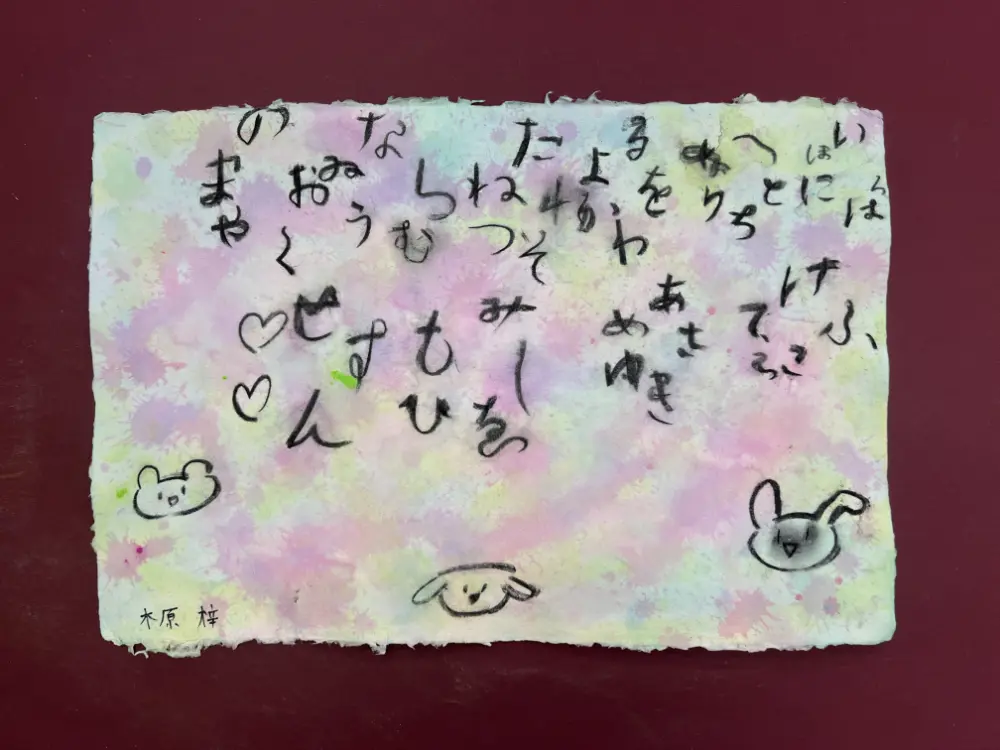 いろは
にほ
へと
ちり
ぬ
るを
わか
よ
たれ
そ
つね
な
らむ
うゐ
の
おく
まや
けふ
こえて
あさき
ゆめ
みし
ゑ
ひも
せす
ん
木原 梓